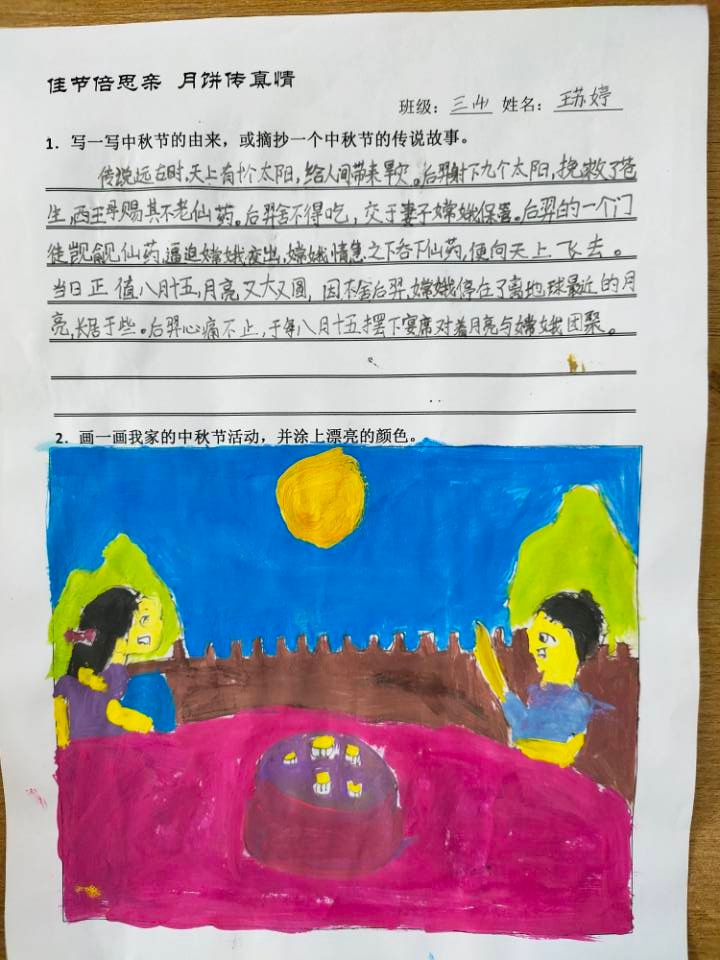 佳节倍思亲 月饼传真情
班级：三(4) 姓名：王苏婷
1．写一写中秋节的由来，或摘抄一个中秋节的传说故事。
传说远古时,天上有十个太阳,给人间带来旱灾。后羿射下九个太阳,挽救了苍
生,西王母赐其不老仙药。后羿舍不得吃，交于妻子嫦娥保管。后羿的一个门
徒觊觎仙药,逼迫嫦娥交出,嫦娥情急之下吞下仙药,便向天上飞去。
当日正值八月十五,月亮又大又圆，因不舍后羿,嫦娥停在了离地球最近的月
亮,长居于些。后羿心痛不止,于每八月十五摆下宴席对着月亮与嫦娥团聚。
2．画一画我家的中秋节活动，并涂上漂亮的颜色。